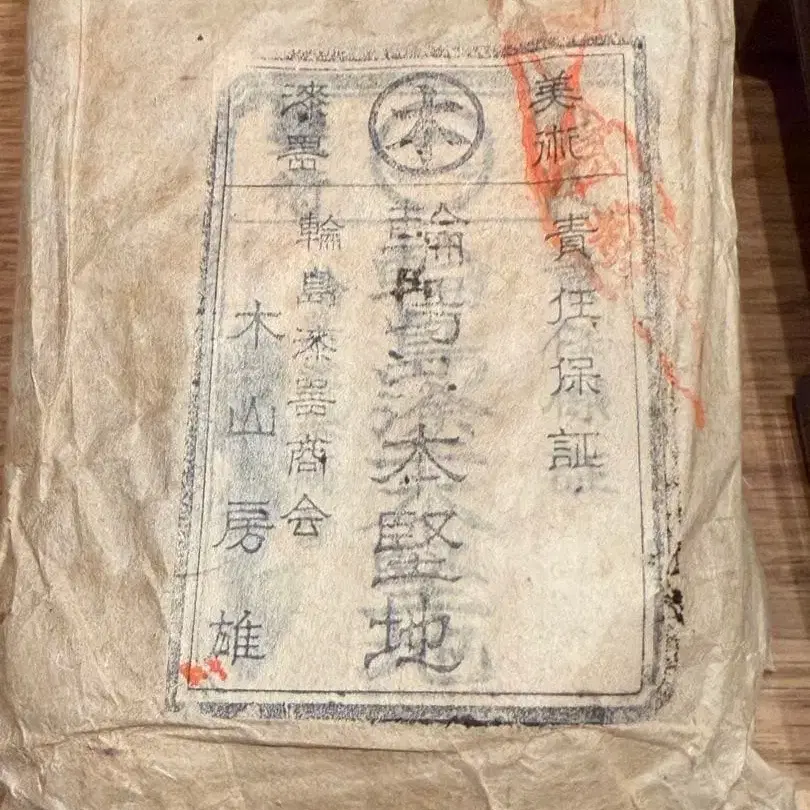 美術
責任保証
木
輪島塗本堅地
漆器
輪島漆器商会
木山房雄